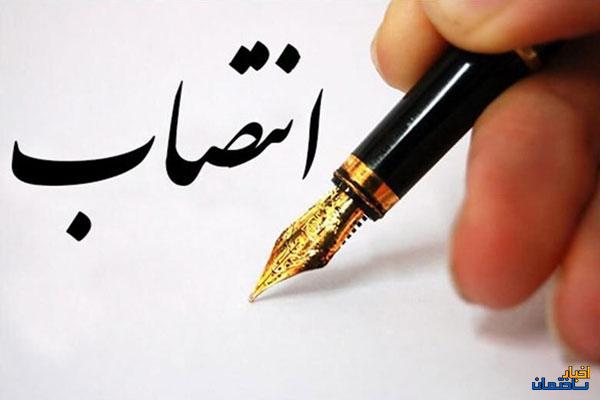 انتصاب
اخبار
ساختمان